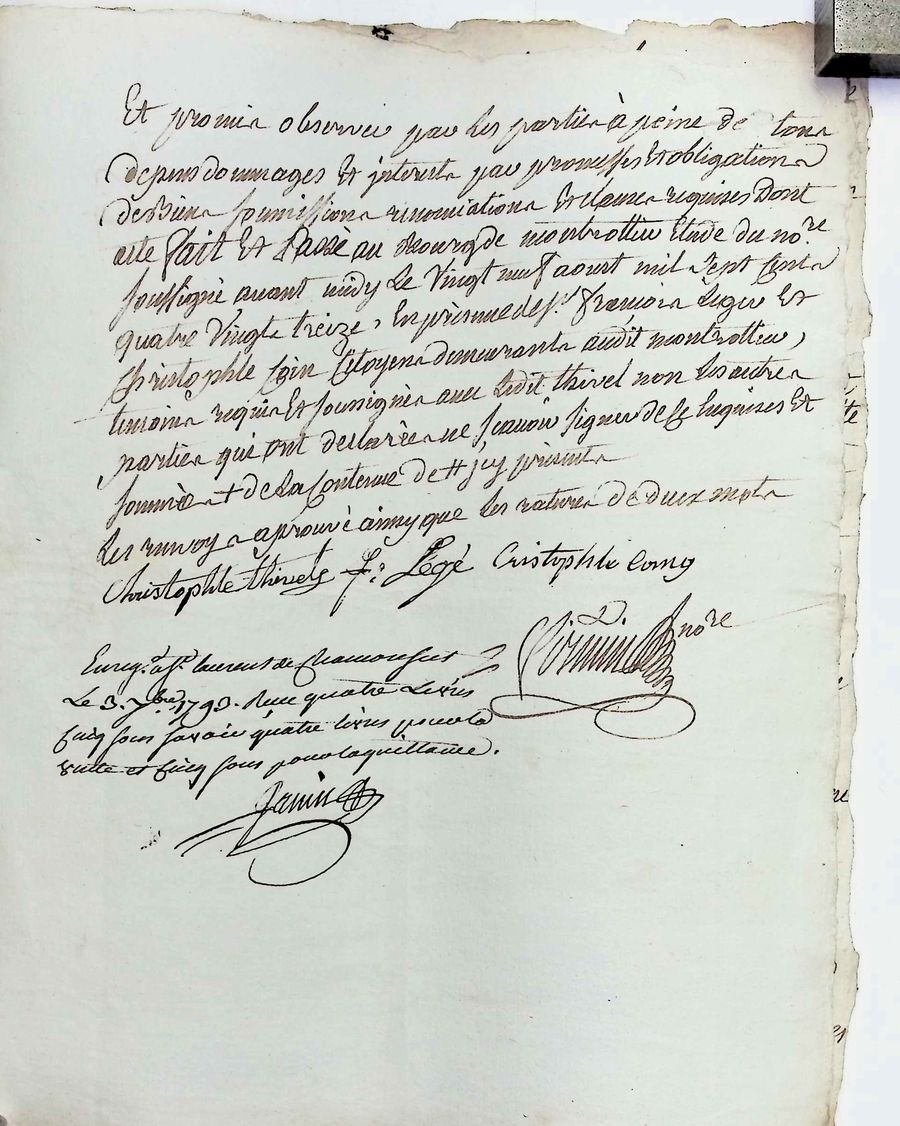 Et promis observer par les parties à peine de tous
depens dommages et interets par promesses et obligations
des biens soumissions renonciations et clauses requises Dont
acte fait et Passé au Bourg de montrottier Etude du no.re
soussigné avant midy Le Vingt neuf aoust mil sept Cents
quatre Vingts treize, En présence de s.r françois Leger Et
Christophle Coin Citoyens demeurants audit montrottier,
temoins requis Et soussignés avec Ledit thivel non Les autres
parties qui ont declarées ne scavoir signer de Ce Enquises Et
sommées + de La Contenue de # jcy presents
les renvoys aprouvé ainsy que les ratures de deux mots
Christophle thivel f: Légé Cristophle
no.re
Enreg.é à S.t laurent de Chamousset
Le 3. 7bre 1793. Reçu quatre Livres
Cinq sous savoir quatre livres pour la
vente et Cinq sous pour la quittance.